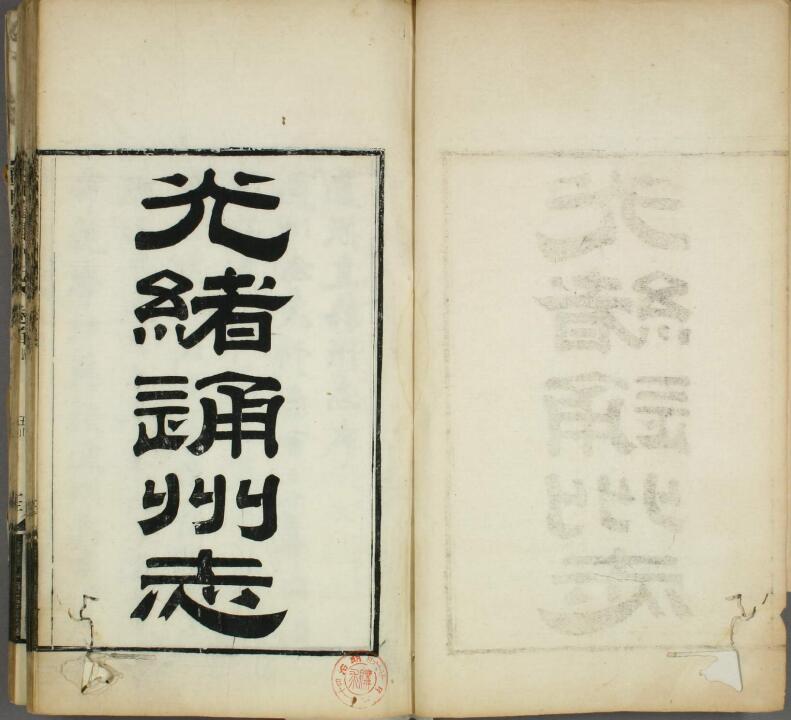 光緒通州志